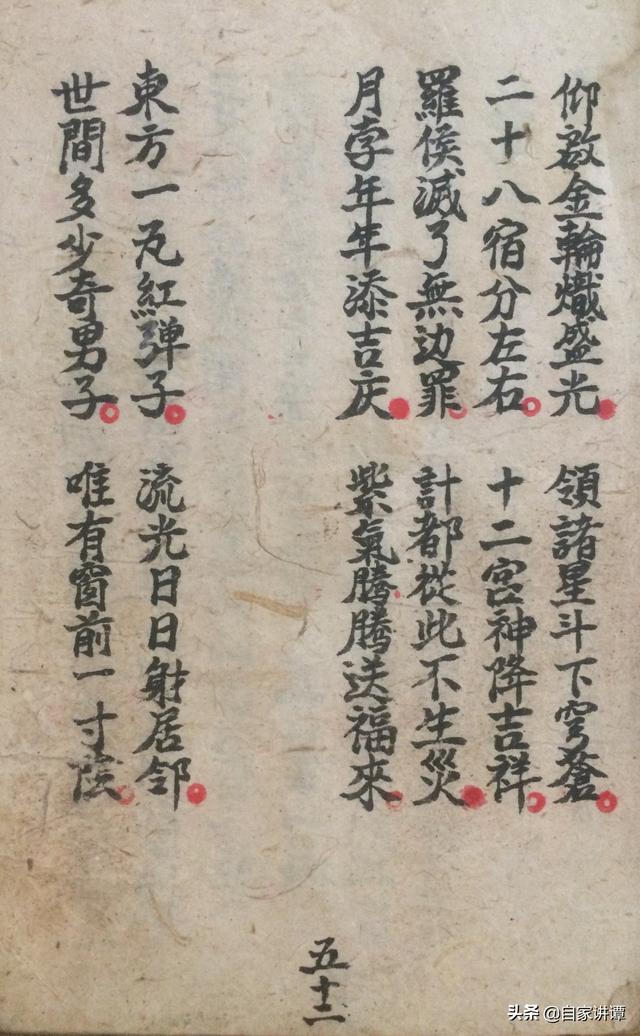 仰啟金輪熾盛光 領諸星斗下穹蒼
二十八宿分左右 十二宮神降吉祥
羅侯滅了無边罪 計都從此不生災
月孛年年添吉庆 紫氣騰騰送福來
東方一元紅弹子 流光日日射居邻
世間多少奇男子 唯有窗前一寸陰
五十二
头条 @自家讲谭